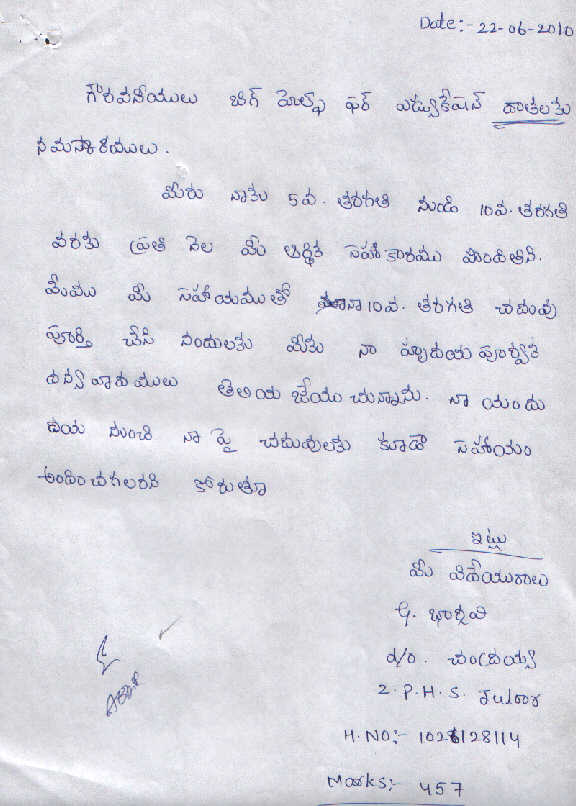 Date:- 22-06-2010
గౌరవనీయులు బిగ్ హెల్ప్ ఫర్ ఎడ్యుకేషన్ దాతలకు
నమస్కారములు.
మీరు నాకు 5వ. తరగతి నుండి 10వ. తరగతి
వరకు ప్రతి నెల మీ ఆర్థిక సహాకారము పొందితిని.
మేము మీ సహాయముతో నా 10వ. తరగతి చదువు
పూర్తి చేసి నందులకు మీకు నా హృదయ పూర్వక
ధన్యవాదములు తెలియ జేయు చున్నాను. నా యందు
దయ నుంచి నా పై చదువులకు కూడా సహాయం
అందించగలరని కోరుతూ
ఇట్లు
మీ విధేయురాలు
జి. భార్గవి
D/o. చంద్రయ్య
Z. P. H. S.
H. NO:- 1026128114
Marks:- 457